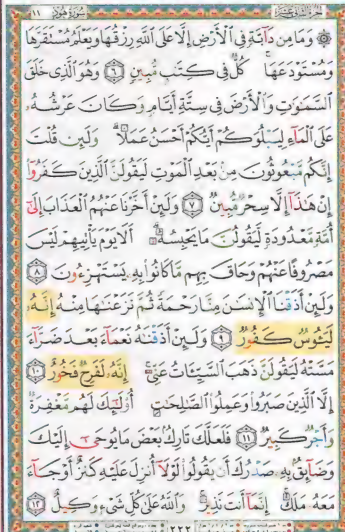 الجزء الثاني عشر ١١ سورة هود
۞ وَمَا مِن دَآبَّةٍ فِي ٱلْأَرْضِ إِلَّا عَلَى ٱللَّهِ رِزْقُهَا وَيَعْلَمُ مُسْتَقَرَّهَا
وَمُسْتَوْدَعَهَا ۚ كُلٌّ فِي كِتَٰبٍ مُّبِينٍ ٦ وَهُوَ ٱلَّذِي خَلَقَ
ٱلسَّمَٰوَٰتِ وَٱلْأَرْضَ فِي سِتَّةِ أَيَّامٍ وَكَانَ عَرْشُهُۥ
عَلَى ٱلْمَآءِ لِيَبْلُوَكُمْ أَيُّكُمْ أَحْسَنُ عَمَلًا ۗ وَلَئِن قُلْتَ
إِنَّكُم مَّبْعُوثُونَ مِنۢ بَعْدِ ٱلْمَوْتِ لَيَقُولَنَّ ٱلَّذِينَ كَفَرُوٓا۟
إِنْ هَٰذَآ إِلَّا سِحْرٌ مُّبِينٌ ٧ وَلَئِنْ أَخَّرْنَا عَنْهُمُ ٱلْعَذَابَ إِلَىٰٓ
أُمَّةٍ مَّعْدُودَةٍ لَّيَقُولُنَّ مَا يَحْبِسُهُۥٓ ۗ أَلَا يَوْمَ يَأْتِيهِمْ لَيْسَ
مَصْرُوفًا عَنْهُمْ وَحَاقَ بِهِم مَّا كَانُوا۟ بِهِۦ يَسْتَهْزِءُونَ ٨
وَلَئِنْ أَذَقْنَا ٱلْإِنسَٰنَ مِنَّا رَحْمَةً ثُمَّ نَزَعْنَٰهَا مِنْهُ إِنَّهُۥ
لَيَـُٔوسٌ كَفُورٌ ٩ وَلَئِنْ أَذَقْنَٰهُ نَعْمَآءَ بَعْدَ ضَرَّآءَ
مَسَّتْهُ لَيَقُولَنَّ ذَهَبَ ٱلسَّيِّـَٔاتُ عَنِّىٓ ۚ إِنَّهُۥ لَفَرِحٌ فَخُورٌ ١٠
إِلَّا ٱلَّذِينَ صَبَرُوا۟ وَعَمِلُوا۟ ٱلصَّٰلِحَٰتِ أُو۟لَٰٓئِكَ لَهُم مَّغْفِرَةٌ
وَأَجْرٌ كَبِيرٌ ١١ فَلَعَلَّكَ تَارِكٌۢ بَعْضَ مَا يُوحَىٰٓ إِلَيْكَ
وَضَآئِقٌۢ بِهِۦ صَدْرُكَ أَن يَقُولُوا۟ لَوْلَآ أُنزِلَ عَلَيْهِ كَنزٌ أَوْ جَآءَ
مَعَهُۥ مَلَكٌ ۚ إِنَّمَآ أَنتَ نَذِيرٌ ۚ وَٱللَّهُ عَلَىٰ كُلِّ شَىْءٍ وَكِيلٌ ١٢
٢٢٢